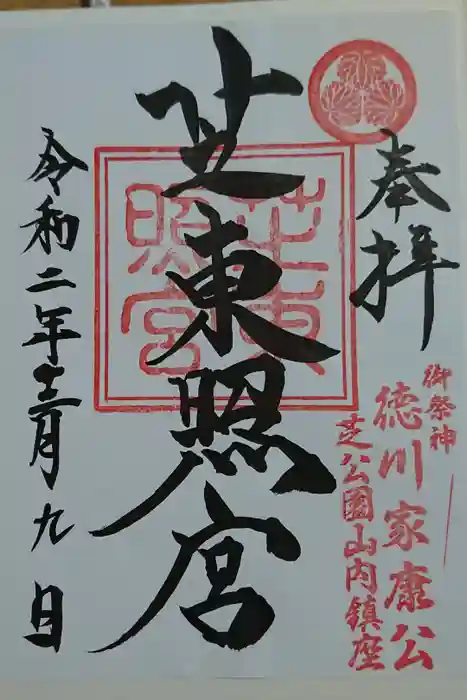 奉拝
御祭神
徳川家康公
芝公園山内鎮座
芝東照宮
芝東照宮
令和二年十二月九日